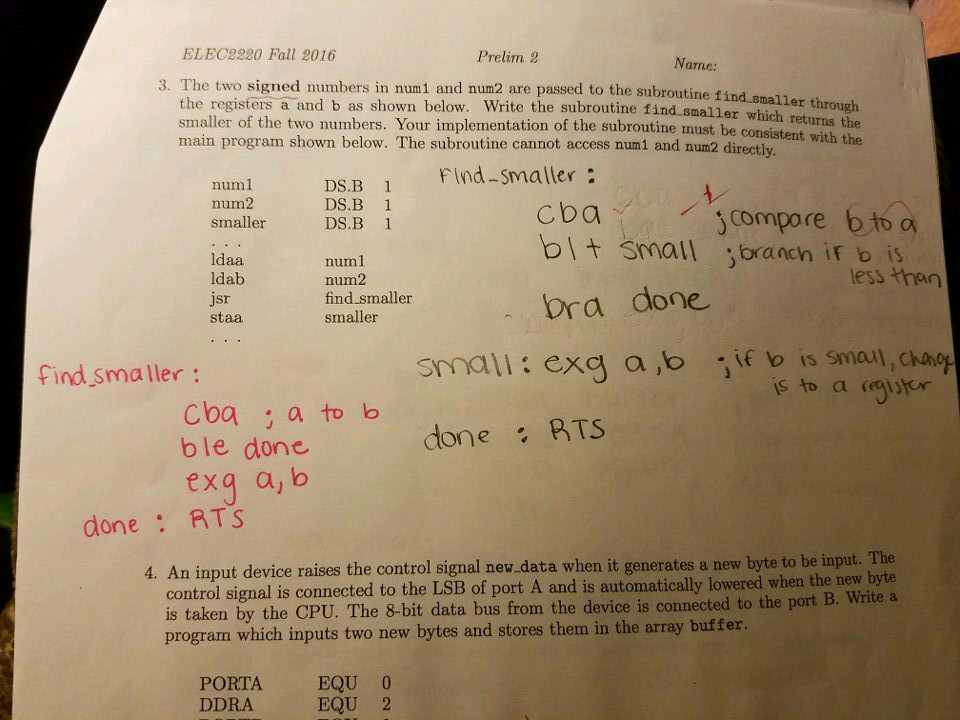 ELEC2220 Fall 2016 Prelim 2 Name:
3. The two signed numbers in num1 and num2 are passed to the subroutine find_smaller through
the registers a and b as shown below. Write the subroutine find_smaller which returns the
smaller of the two numbers. Your implementation of the subroutine must be consistent with the
main program shown below. The subroutine cannot access num1 and num2 directly.
num1 DS.B 1
num2 DS.B 1
smaller DS.B 1
. . .
ldaa num1
ldab num2
jsr find_smaller
staa smaller
. . .
find_smaller :
cba ; compare b to a
blt small ; branch if b is
less than
bra done
small : exg a,b ; if b is small, change
is to a register
done : RTS
find_smaller :
cba ; a to b
ble done
exg a,b
done : RTS
4. An input device raises the control signal new_data when it generates a new byte to be input. The
control signal is connected to the LSB of port A and is automatically lowered when the new byte
is taken by the CPU. The 8-bit data bus from the device is connected to the port B. Write a
program which inputs two new bytes and stores them in the array buffer.
PORTA EQU 0
DDRA EQU 2